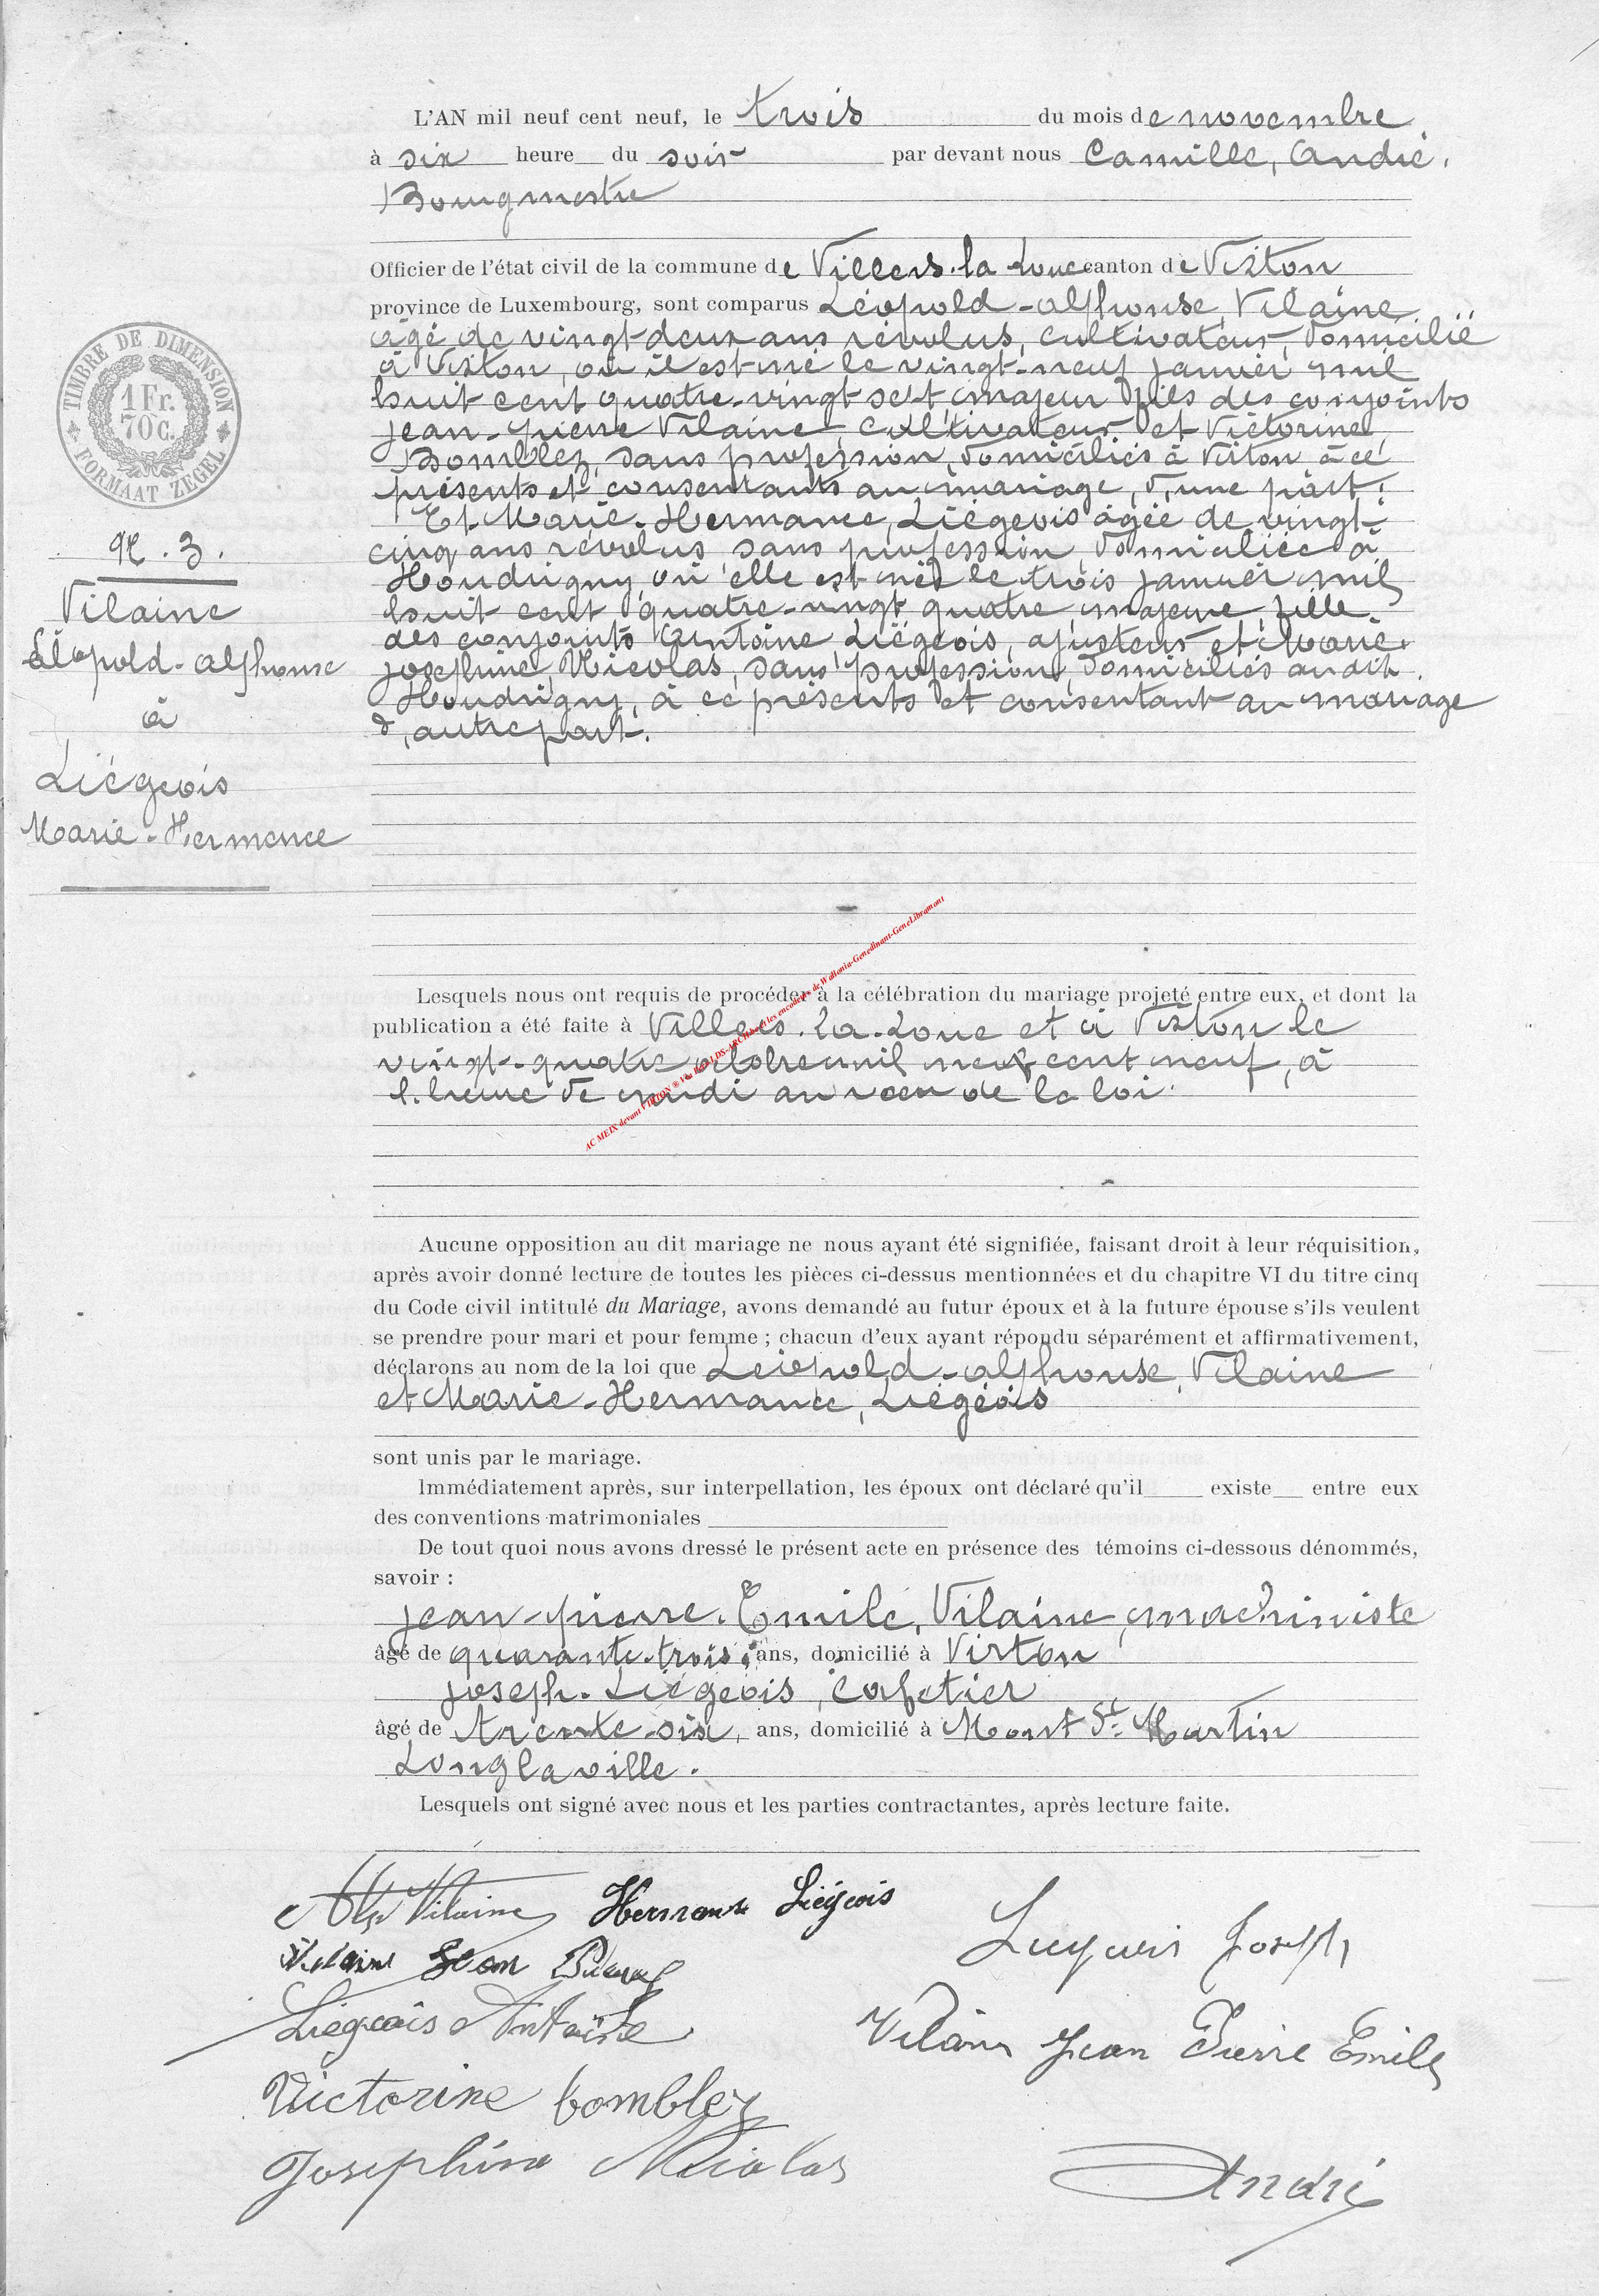 L'AN mil neuf cent neuf, le trois du mois de novembre
à six heure du soir par devant nous Camille, André,
Bourgmestre
Officier de l'état civil de la commune de Villers-la-Loue canton de Virton
province de Luxembourg, sont comparus Léopold-alphonse, Vilaine
âgé de vingt-deux ans révolus, cultivateur, domicilié
à Virton, où il est né le vingt-neuf janvier mil
huit cent quatre-vingt sept, majeur, fils des conjoints
jean-pierre Vilaine, cultivateur et Victorine,
Bomblez, sans profession, domiciliés à Virton à ce
présents et consentants au mariage, d'une part.
Et Marie-Hermance, Liégeois âgée de vingt-
cinq ans révolus sans profession, domiciliée à
Houdrigny où elle est née le trois janvier mil
huit cent quatre-vingt quatre, majeure, fille
des conjoints Antoine, Liégeois, ajusteur et Marie-
josephine, Nicolas, sans profession, domiciliés audit
Houdrigny, à ce présents et consentant au mariage
d'autre part.
TIMBRE DE DIMENSION
1 Fr.
70 C.
FORMAAT ZEGEL
N. 3.
Vilaine
Léopold-alphonse
à
Liégeois
Marie-Hermence
Lesquels nous ont requis de procéder à la célébration du mariage projeté entre eux, et dont la
publication a été faite à Villers-La-Loue et à Virton le
vingt-quatre octobre mil neuf cent neuf, à
l'heure de midi au vœu de la loi.
Aucune opposition au dit mariage ne nous ayant été signifiée, faisant droit à leur réquisition,
après avoir donné lecture de toutes les pièces ci-dessus mentionnées et du chapitre VI du titre cinq
du Code civil intitulé du Mariage, avons demandé au futur époux et à la future épouse s'ils veulent
se prendre pour mari et pour femme ; chacun d'eux ayant répondu séparément et affirmativement,
déclarons au nom de la loi que Léopold-alphonse, Vilaine
et Marie-Hermance, Liégeois
sont unis par le mariage.
Immédiatement après, sur interpellation, les époux ont déclaré qu'il existe entre eux
des conventions matrimoniales
De tout quoi nous avons dressé le présent acte en présence des témoins ci-dessous dénommés,
savoir :
jean-pierre-Emile, Vilaine, machiniste
âgé de quarante-trois ans, domicilié à Virton
joseph-Liégeois, cafetier
âgé de trente-six, ans, domicilié à Mont St. Martin
Longlaville.
Lesquels ont signé avec nous et les parties contractantes, après lecture faite.
Vilaine Hermance Liégeois
Vilaine Jean Pierre
Liégeois Joseph
Liégeois Antoine
Vilaine Jean Pierre Emile
Victorine bomblez
Josephine Nicolas
André